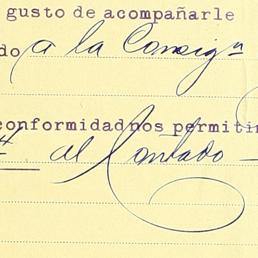 gusto de acompañarle
do a la Consigⁿ
conformidad nos permitin
al Contado